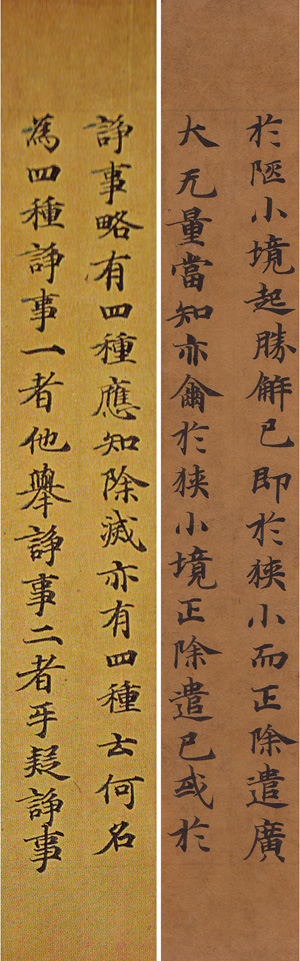 於陿小境起勝解已即於狭小而正除遣廣
大无量當知亦爾於狭小境正除遣已或於
諍事略有四種應知除滅亦有四種云何名
為四種諍事一者他舉諍事二者㸦疑諍事